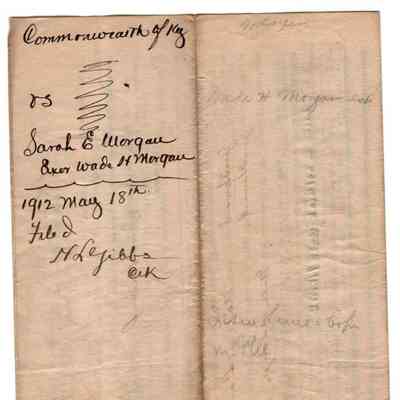 Commonwealth of Ky
vs
Sarah E Morgan
Exor Wade H Morgan
1912 May 18th
Filed
N L Gibbs
Clk
Wade H Morgan